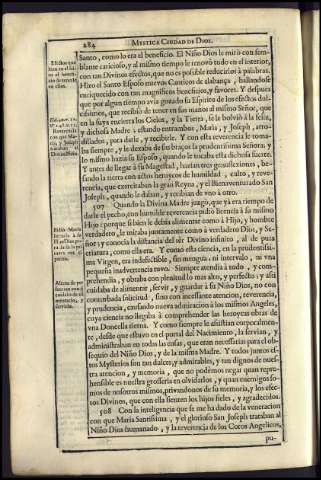 284
MYSTICA CIUDAD DE DIOS.
Santo, como lo era el beneficio. El Niño Dios le miró con sem-
blante caricioso, y al mismo tiempo le renovó todo en el interior,
con tan Divinos efectos, que no es posible reducirlos à palabras.
Hizo el Santo Esposo nuevos Canticos de alabança, hallandose
enriquecido con tan magnificos beneficios, y favores. Y despues
que por algun tiempo avia gozado su Espiritu de los efectos dul-
cissimos, que recibió de tener en sus manos al mismo Señor, que
en la suya encierra los Cielos, y la Tierra, se le bolvió à la feliz,
y dichosa Madre: estando entrambos, Maria, y Joseph, arro-
dillados, para darle, y recibirle. Y con esta reverencia le toma-
ba siempre, y le dexaba de sus braços la prudentissima Señora; y
lo mismo hazia su Esposo, quando le tocaba esta dichosa suerte.
Y antes de llegar à su Magestad, hazian tres genuflexiones, be-
sando la tierra con actos heroycos de humildad, culto, y reve-
rencia, que exercitaban la gran Reyna, y el Bienaventurado San
Joseph, quando le daban, y recibian de vno à otro.
507 Quando la Divina Madre juzgó, que yà era tiempo de
darle el pecho, con humilde reverencia pidió licencia à su mismo
Hijo: porque si bien le debia alimentar como à Hijo, y hombre
verdadero, le miraba juntamente como à verdadero Dios, y Se-
ñor; y conocia la distancia del sèr Divino infinito, al de pura
criatura, como ella era. Y como esta ciencia, en la prudentissi-
ma Virgen, era indefectible, sin mengua, ni intervalo, ni vna
pequeña inadvertencia tuvo. Siempre atendia à todo, y com-
prehendia, y obraba con plenitud lo mas alto, y perfecto; y assi
cuidaba de alimentar, servir, y guardar à su Niño Dios, no con
conturbada solicitud, sino con incessante atencion, reverencia,
y prudencia, causando nueva admiracion à los mismos Angeles,
cuya ciencia no llegaba à comprehender las heroycas obras de
vna Donzella tierna. Y como siempre le assistian corporalmen-
te, desde que estuvo en el portal del Nacimiento, la servian, y
administraban en todas las cosas, que eran necessarias para el ob-
sequio del Niño Dios, y de la misma Madre. Y todos juntos es-
tos Mysterios son tan dulces, y admirables, y tan dignos de nues-
tra atencion, y memoria, que no podèmos negar quan repre-
hensible es nuestra grosseria en olvidarlos, y quan enemigos so-
mos de nosotros mismos, privandonos de su memoria, y los efec-
tos Divinos, que con ella sienten los hijos fieles, y agradecidos.
508 Con la inteligencia que se me ha dado de la veneracion
con que Maria Santissima, y el glorioso San Joseph trataban al
Niño Dios humanado, y la reverencia de los Coros Angelicos,
pu-